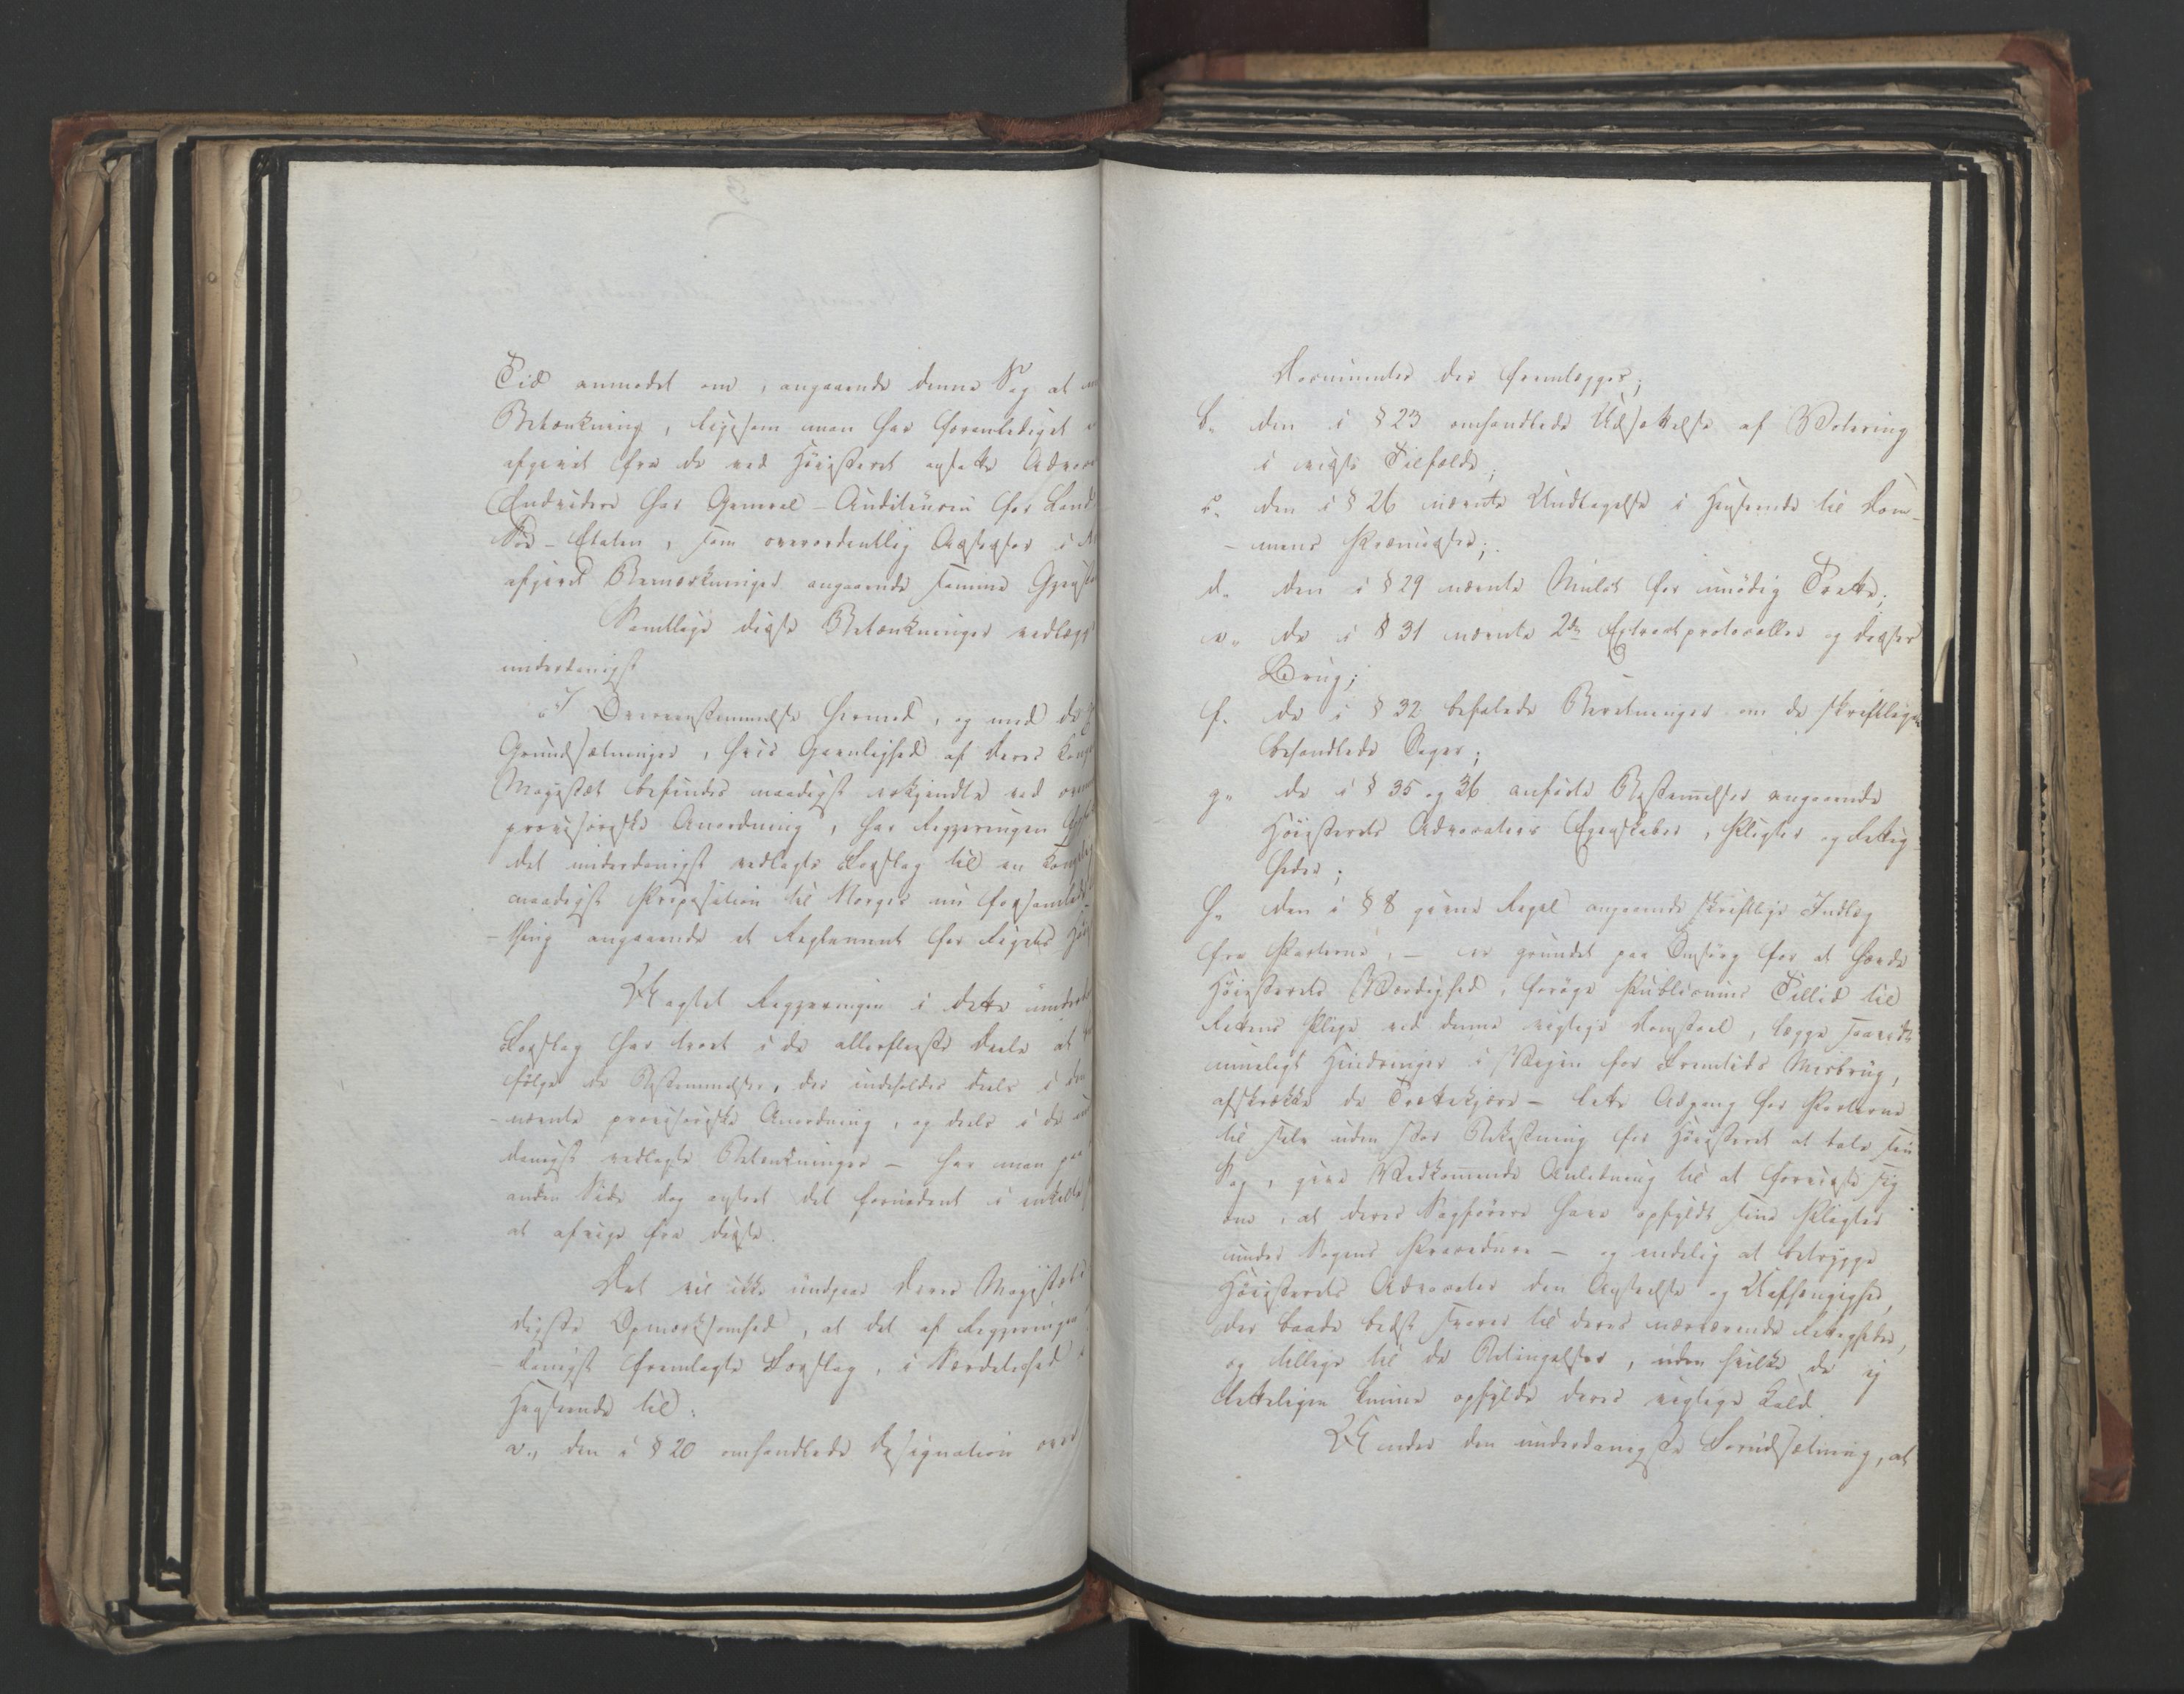 Tid anmodet om, angaaende denne Sag at
Betænkning, ligesom man har foranlediget
afgivet fra de ved Høiesteret ansatte Advoc
Endvidere har General-Auditeuren for Land
Sø-Etaten, som overordentlig Assessor i
afgivet Bemærkninger angaaende samme Gjenst
Samtlige disse Betænkninger vedlægg
underdanigst
I Overeensstemmelse hermed, og med de
Grundsætninger, hvis Gavnlighed af Deres Kong
Majestæt befindes naadigst erkjendte ved oven
provisoriske Anordning, har Regjeringen
det underdanigst vedlagte Forslag til en Kongelig
naadigst Proposition til Norges nu forsamlede
-thing angaaende et Reglement for Rigets Høie
Uagtet Regjeringen i dette underd
Forslag har troet i de allerfleste Dele at
følge de Bestemmelser, der indeholdes deels i den
-nævnte provisoriske Anordning, og deels i de und
danigst vedlagte Betænkninger - har man paa
anden Side dog anseet det fornødent i enkelte
at afvige fra disse.
Det vil ikke undgaae Deres Majestæts
digste Opmærksomhed, at det af Regjeringen
danigst fremlagte Forslag, i Særdeleshed i
Henseende til:
a., den i § 20 omhandlede Designation over
Documenter der fremlægges;
b., den i § 23 omhandlede Udsættelse af Votering
i visse Tilfælde;
c., den i § 26 nævnte Undtagelse i Henseende til Dom-
-mens Præmisser;
d., den i § 29 nævnte Mulct for unødig Trætte;
e., de i § 31 nævnte 2de Extractprotocoller og disses
Brug;
f. de i § 32 befalede Beretninger om de skriftligen
behandlede Sager;
g., de i § 35 og 36 anførte Bestemmelser angaaende
Høiesterets Advocaters Egenskaber, Pligter og Rettig-
heder;
h., den i § 8 givne Regel angaaende skriftlige Indlæg
fra Parterne, - er grundet paa Omsorg for at hævde
Høiesterets Værdighed, forøge Publicums Tillid til
Rettens Pleie ved denne vigtige Domstoel, lægge saavidt
mueligt Hindringer i Veien for Fremtids Misbrug,
afskrække de Trættekjære - lette Adgang for Parterne
til selv uden stor Bekostning for Høiesteret at tale sin
Sag, give Vedkommende Anledning til at forvisse sig
om, at deres Sagførere have opfyldt sine Pligter
under Sagens Procedure - og endelig at betrygge
Høiesterets Advocater den Anseelse og Uafhængighed,
der baade bedst svarer til deres nærværende Rettigheder,
og tillige til de Betingelser, uden hvilke de ei
tilbørligen kunne opfylde deres vigtige Kald.
Under den underdanigste Forudsætning, at